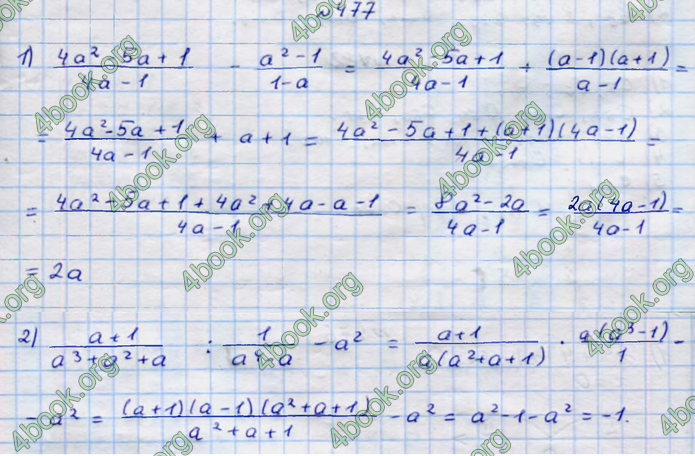 №477
1) (4a² - 5a + 1)/(4a - 1) - (a² - 1)/(1 - a) = (4a² - 5a + 1)/(4a - 1) + ((a-1)(a+1))/(a - 1) =
= (4a² - 5a + 1)/(4a - 1) + a + 1 = (4a² - 5a + 1 + (a+1)(4a-1))/(4a - 1) =
= (4a² - 5a + 1 + 4a² + 4a - a - 1)/(4a - 1) = (8a² - 2a)/(4a - 1) = (2a(4a-1))/(4a - 1) =
= 2a
2) (a+1)/(a³ + a² + a) : 1/(a⁴ - a) - a² = (a+1)/(a(a²+a+1)) · (a(a³-1))/1 -
- a² = ((a+1)(a-1)(a²+a+1))/(a² + a + 1) - a² = a² - 1 - a² = -1.
4book.org
4book.org
4book.org
4book.org
4book.org
4book.org
4book.org
4book.org
4book.org
4book.org
4book.org
4book.org